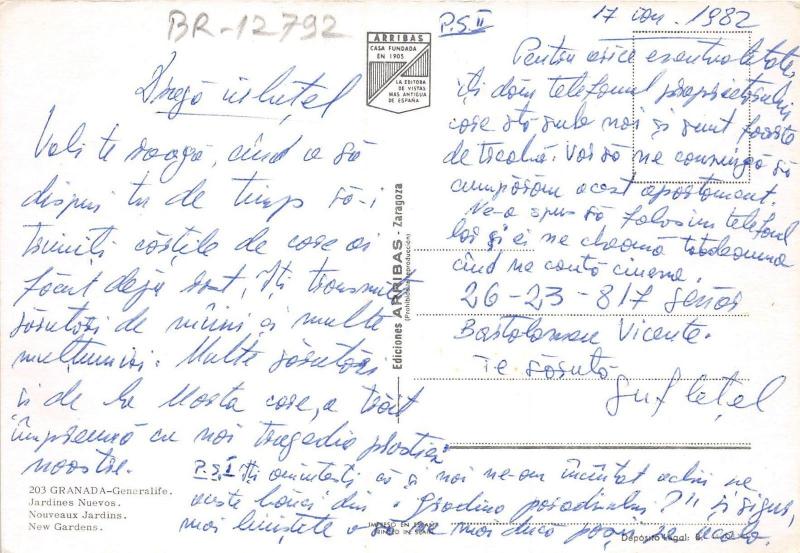 BR-12792
Dragă
Vali te roagă, când o să
dispui tu de timp să-i
trimiți cărțile de care ai
făcut deja rost, Îți transmit
sărutări de mâini și multe
mulțumiri. Multe sărutări
și de la Marta care, a trăit
împreună cu noi tragedia prostiei
noastre.
P.S.I Îți amintești că și noi ne-am încântat
bănci din "Grădina paradisului"! și sigur,
mai liniștete o să ne mai ducă
ARRIBAS
CASA FUNDADA
EN 1905
LA EDITORA
DE VISTAS
MAS ANTIGUA
DE ESPAÑA
Ediciones ARRIBAS - Zaragoza
(Prohibida la reproducción)
P.S II
17 ian. 1982
Pentru orice eventualitate,
îți dăm telefonul proprietarului
care stă sub noi și sunt foarte
de treabă. Vor să ne convingă să
cumpărăm acest apartament.
Ne-a spus să folosim telefonul
lor și ei ne cheamă totdeauna
când ne caută cineva.
26-23-817 Señor
Vicente.
Te sărută
Sufletel
203 GRANADA-Generalife.
Jardines Nuevos.
Nouveaux Jardins.
New Gardens.
IMPRESO EN ESPAÑA
PRINTED IN SPAIN
Depósito Legal: B.